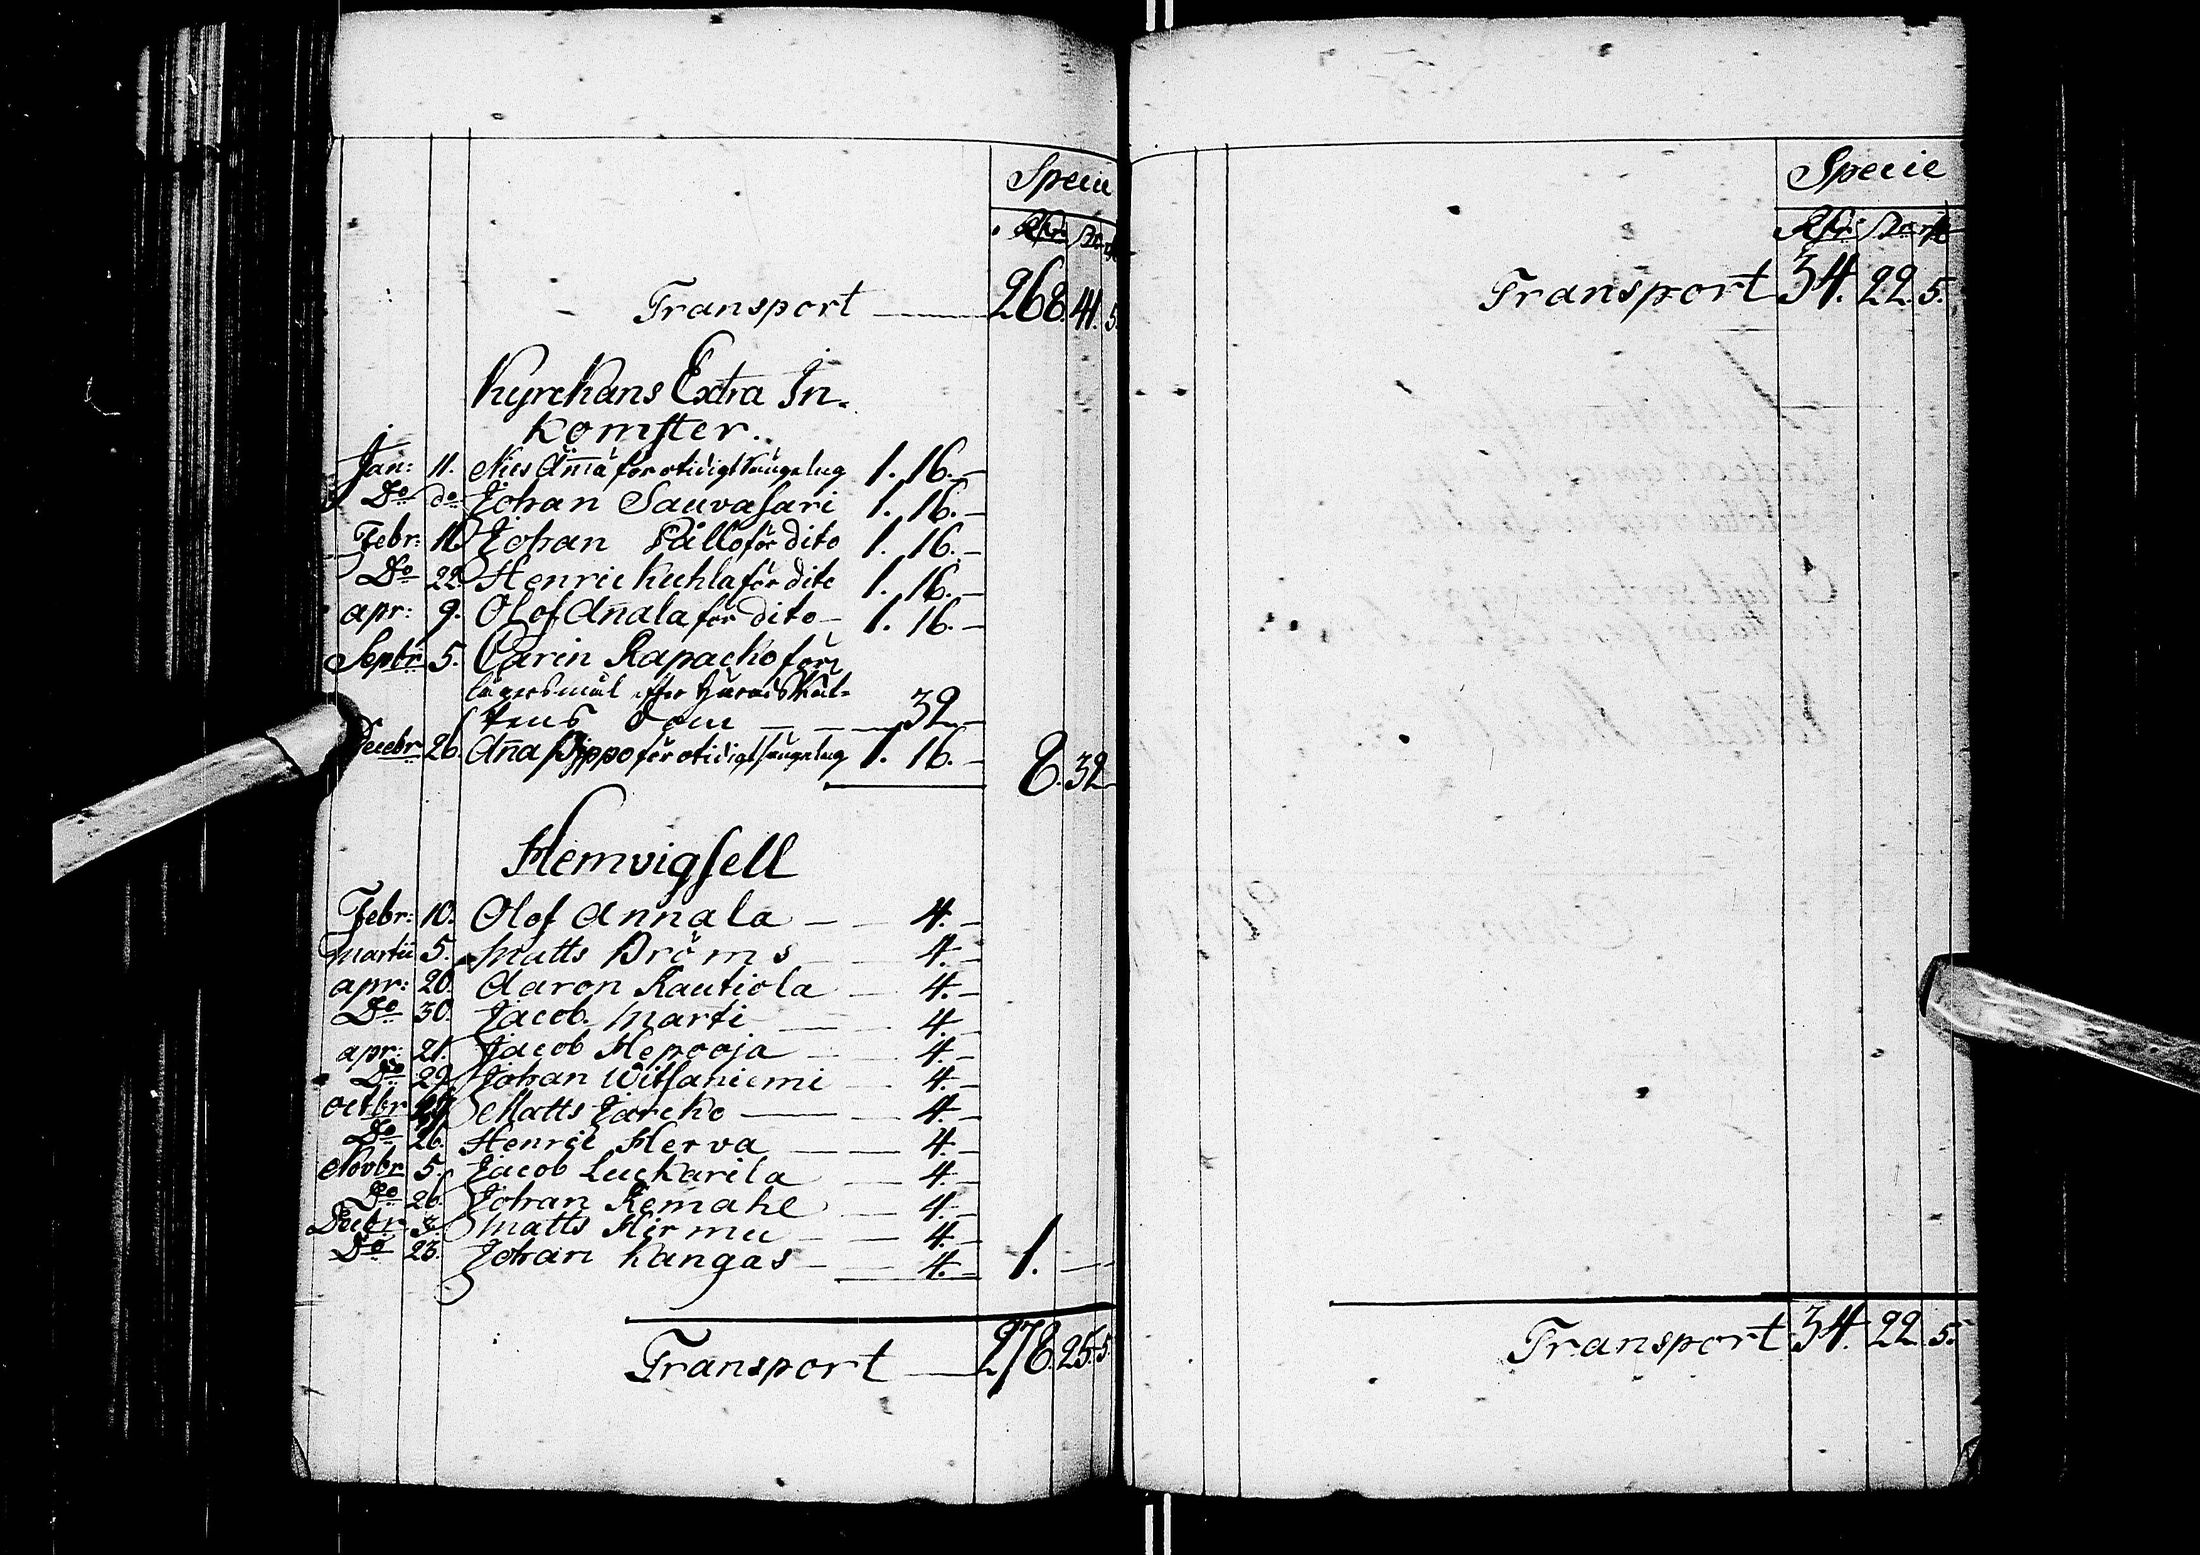 Specie
Rdr sk rs
Transport 268. 41. 5.
Kyrckans Extra In-
komster.
Jan: 11. Nils Änna för otidigt sängelag 1. 16. –
Do do Johan Sauvasari 1. 16. –
Febr: 11. Johan Pällo för dito 1. 16. –
Do 22. Henric Kuhla för dito 1. 16. –
apr: 9. Olof Anala för dito – 1. 16. –
Septbr 5. Carin Rapacko för
lägersmål efter Häradsrät-
tens Dom – – – 32. –
Decebr 26. Ana Pippo för otidigt sängelag 1. 16. – 8. 32
Hemvigsell
Febr: 10. Olof Annala – – 4. –
Martii 5. Matts Dröms – – 4. –
apr: 20. Aaron Rautiola – 4. –
Do 30. Jacob Marti – – 4. –
apr: 21. Jacob Hepooja – – 4. –
Do 29. Johan Witsaniemi – 4. –
Octbr Matts Jarcko – – 4. –
Do 26. Henric Herva – – 4. –
Novbr 5. Jacob Luckarila – 4. –
Do 26. Johan Remahe – 4. –
Decbr 3. Matts Hirmu – – 4. –
Do 23. Johan Kangas – – 4. – 1. –
Transport 278. 25. 5.
Specie
Rdr sk rs
Transport 34. 22. 5.
Transport 34. 22. 5.